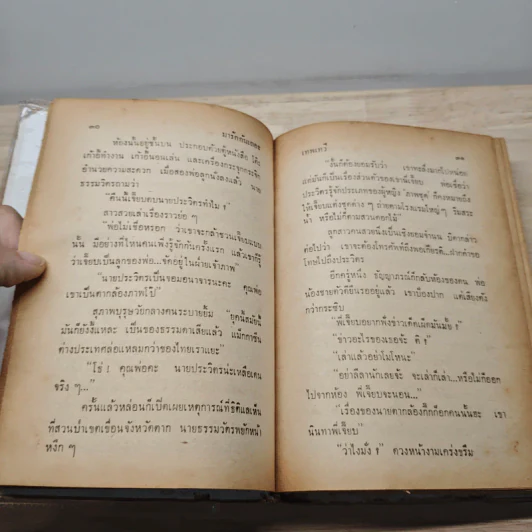 ๑๐
มารค์คัมแอลส์
ห้องนั้นอยู่ชั้นบน ประกอบด้วยตู้หนังสือ โต๊ะ
เก้าอี้ทำงาน เก้าอี้นอนเล่น และเครื่องกระจุกกระจิก
อำนวยความสะดวก เมื่อสองพ่อลูกนั่งลงแล้ว นาย
ธรรมวัตรถามว่า
"คืนนี้เจี๊ยบพบนายประวิตรทำไม ?
สาวสวยเล่าเรื่องราวย่อ ๆ
"พ่อไม่เชื่อหรอก ว่าเขาจะกล้าชวนเจี๊ยบแบบ
นั้น มีอย่างที่ไหนคนเพิ่งรู้จักกันครั้งแรก แล้วเขาก็รู้
ว่าเจี๊ยบเป็นลูกของพ่อ...จัดอยู่ในฝ่ายเจ้าภาพ"
"นายประวิตรเป็นจอมอนาจารนะคะ คุณพ่อ
เขาเป็นตากล้องภาพโป๊"
สุภาพบุรุษวัยกลางคนระบายยิ้ม "ยุคนี้สมัยนี้
มันก็ยังงี้แหละ เป็นของธรรมดาเสียแล้ว แม็กกาซีน
ต่างประเทศล่อแหลมกว่าของไทยเราแยะ"
"โธ่ ! คุณพ่อคะ นายประวิตรน่ะเหลือเคน
จริง ๆ..."
ครั้นแล้วหล่อนก็เปิดเผยเหตุการณ์ที่ธิติแลเห็น
ที่สวนป่าเขตเขื่อนจังหวัดตาก นายธรรมวัตรพยักหน้า
หงึก ๆ
เทพเทวี
๑๑
"งั้นก็ต้องยอมรับว่า เขาทะลึ่งมากไปหน่อย
แต่มันก็เป็นเรื่องส่วนตัวของเขานี่เจี๊ยบ พ่อเชื่อว่า
ประวิตรรู้จักประเภทของผู้หญิง "ภาพชุด" ที่คงหมายถึง
ให้เจี๊ยบแต่งชุดต่าง ๆ ถ่ายตามโรงแรมใหญ่ๆ ริมสระ
น้ำ หรือไม่ก็ตามสวนดอกไม้"
ลูกสาวคนสวยนิ่งเป็นเชิงยอมจำนน บิดากล่าว
ต่อไปว่า เขาจะต้องโทรศัพท์ถึงพลเกียรติ...ฝากคำขอ
โทษไปถึงประวิตร
อีกครู่หนึ่ง ธัญญาภรณ์ก็กลับห้องของตน พ่อ
น้องชายหัวดียืนรออยู่แล้ว เขาเบี่ยงปาก แต่เสียงดัง
กว่ากระซิบ
"พี่เจี๊ยบอยากฟังข่าวเด็ดเม็ดมันมั้ย ?"
"ข่าวอะไรของเธอจ้ะ ติ ?"
"เล่าแล้วอย่าโมโหนะ"
"อย่าลีลานักเลยจ้ะ จะเล่าก็เล่า...หรือไม่ก็ออก
ไปจากห้อง พี่เจี๊ยบจะนอน..."
"เรื่องของนายตากล้องกิ๊กก๊อกคนนั้นฮะ เขา
นินทาพี่เจี๊ยบ"
"ว่าไงมั่ง ?" ดวงหน้างามเคร่งขรึม